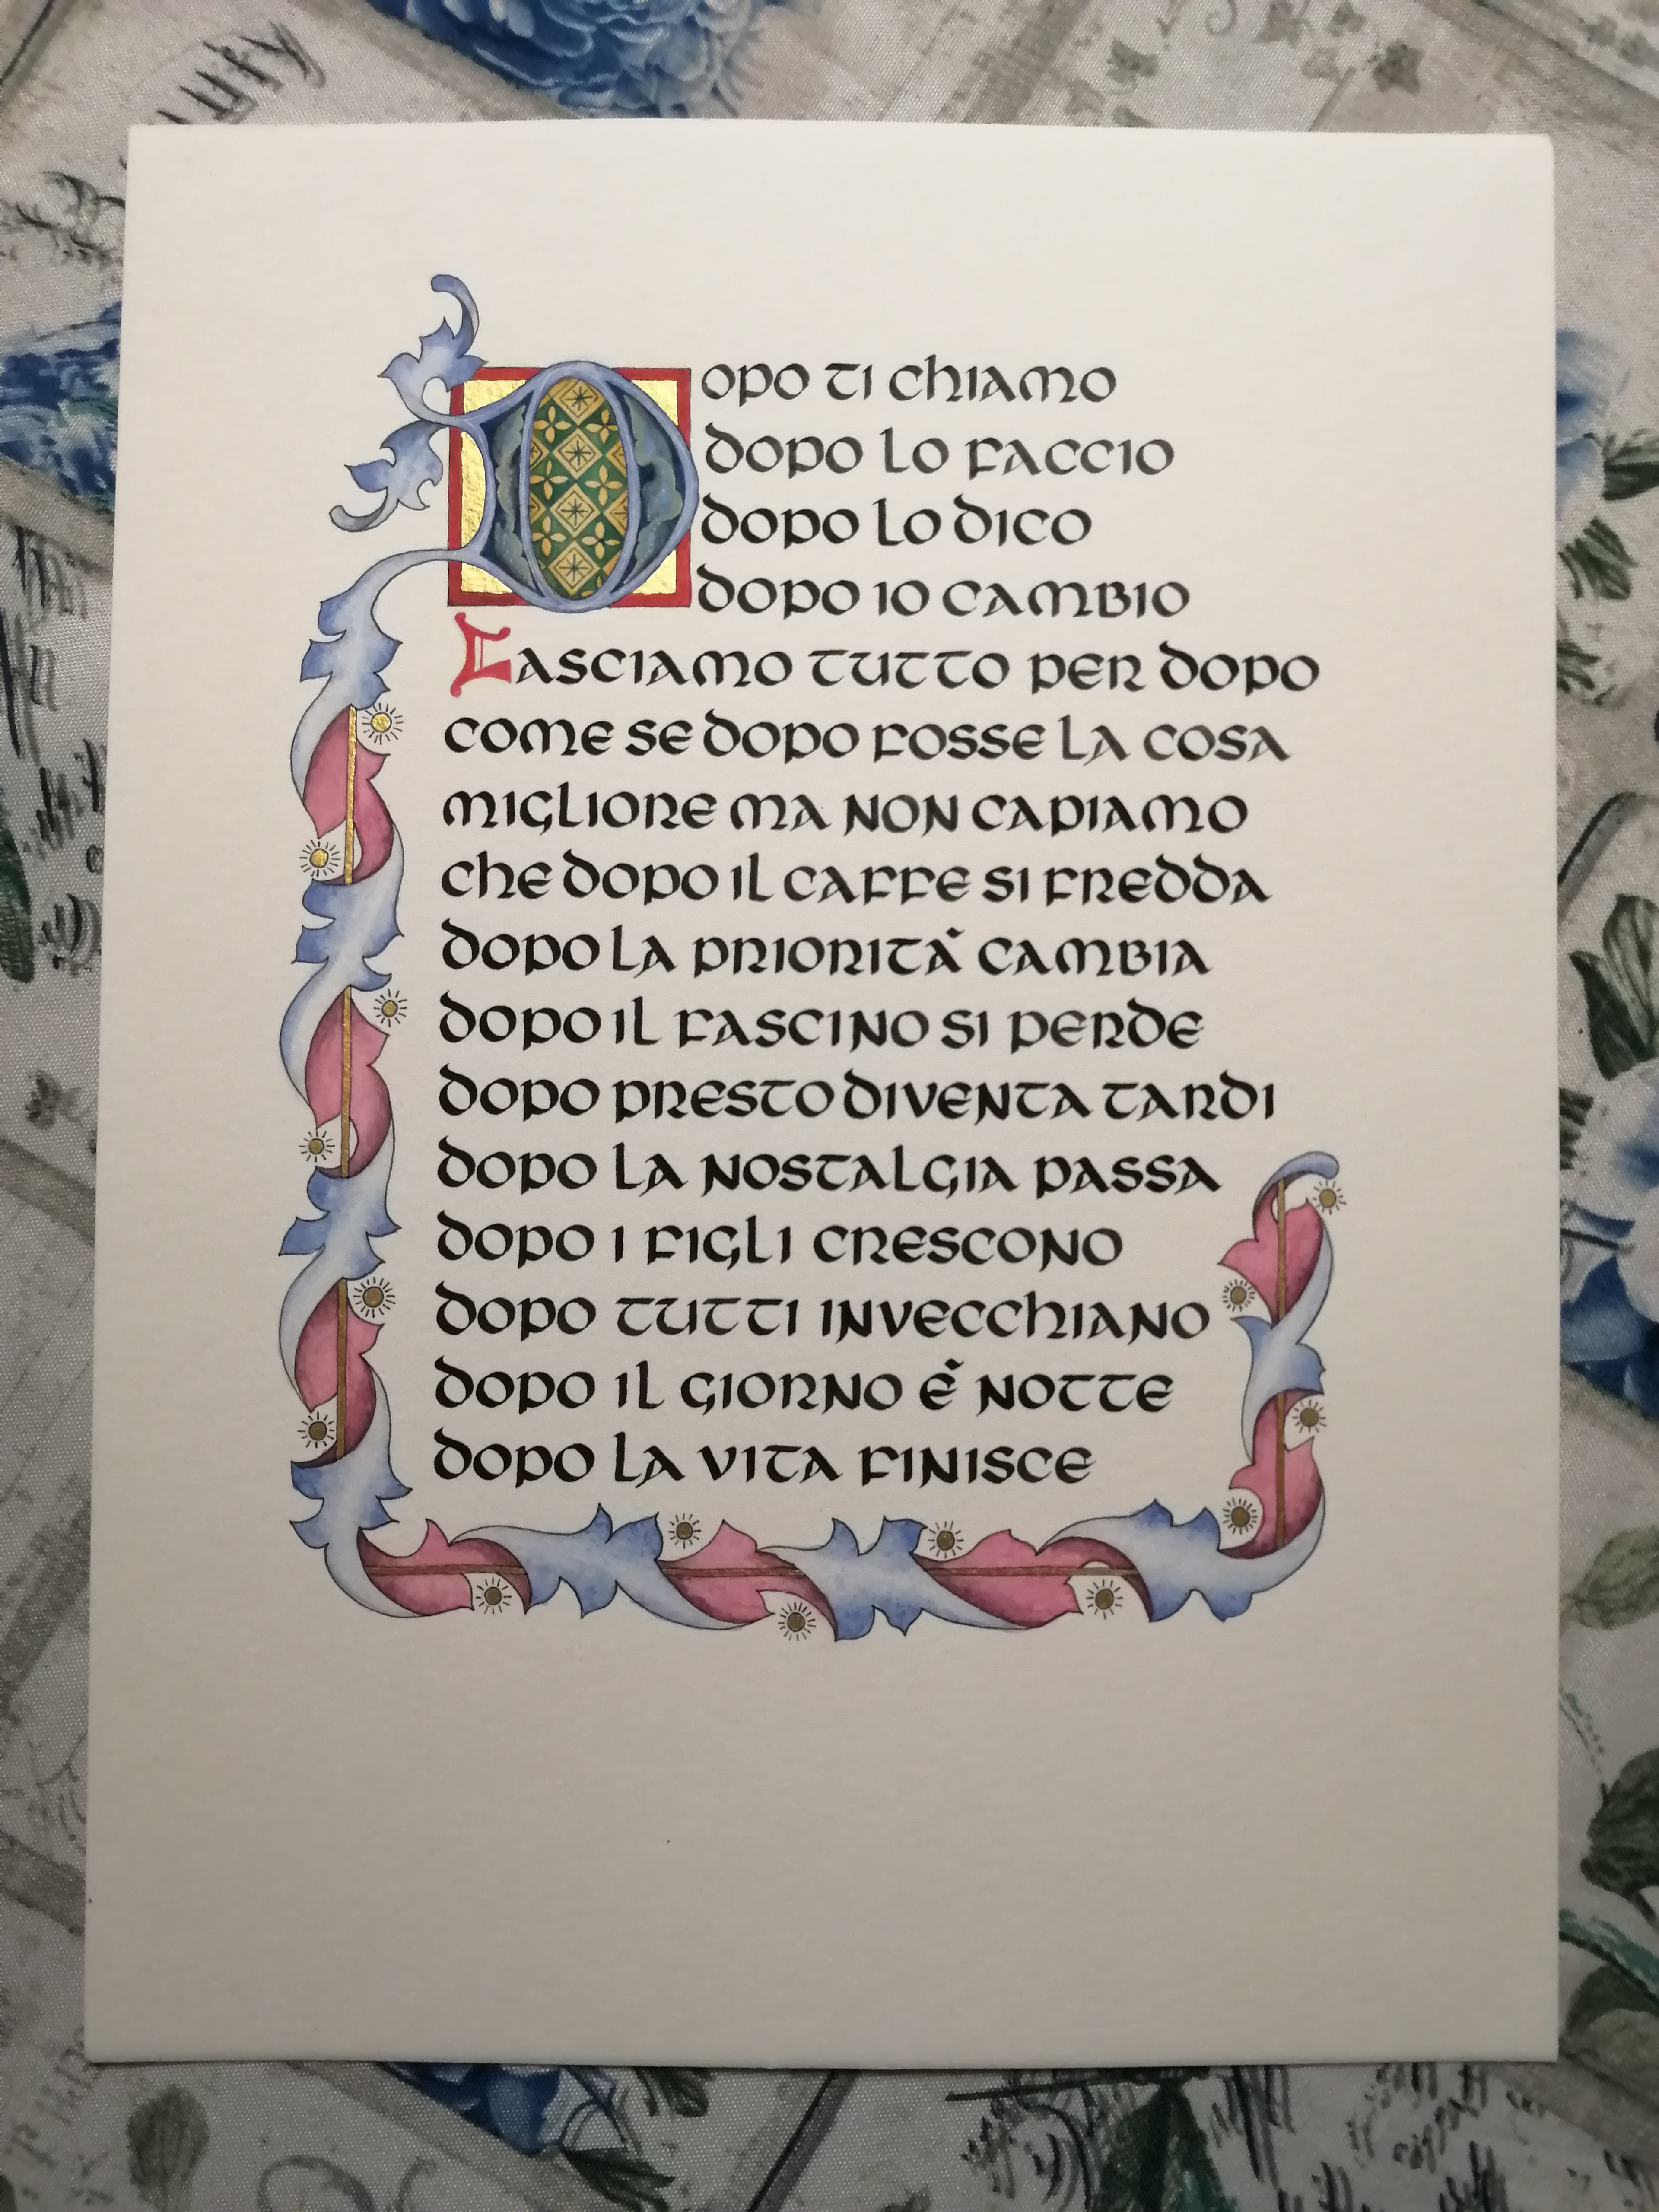 Dopo ti chiamo
dopo lo faccio
dopo lo dico
dopo io cambio
Lasciamo tutto per dopo
come se dopo fosse la cosa
migliore ma non capiamo
che dopo il caffe si fredda
dopo la priorità cambia
dopo il fascino si perde
dopo presto diventa tardi
dopo la nostalgia passa
dopo i figli crescono
dopo tutti invecchiano
dopo il giorno è notte
dopo la vita finisce